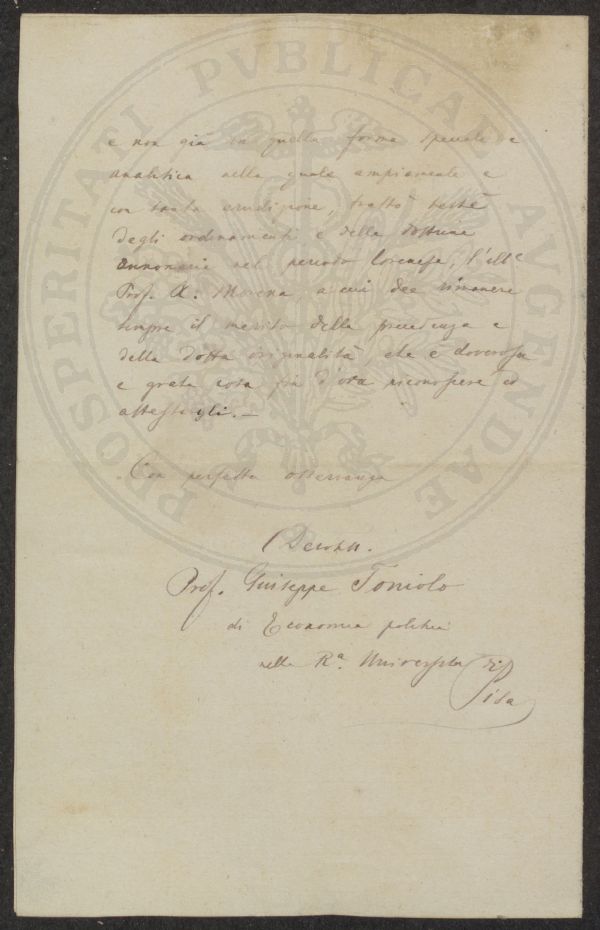 PROSPERITATI PVBLICAE AVGENDAE
e non già in quella forma speciale e
analitica nella quale ampiamente e
con tanta erudizione, trattò testè
degli ordinamenti e della dottrine
annonarie nel periodo Lorenese, l'ill.e
Prof. A. Morena, a cui dee rimanere
sempre il merito della precedenza e
della dotta originalità, che è doverosa
e grata cosa fin d'ora riconoscere ed
attestargli. —
Con perfetta osservanza
Devotss.
Prof. Giuseppe Toniolo
di Economia politica
nella R.a Università di
Pisa